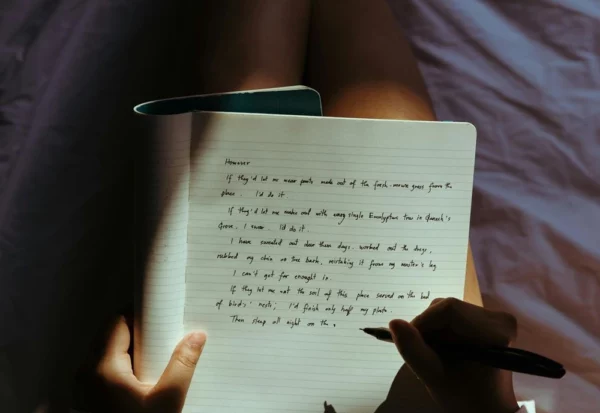 However
If they'd let me wear pants made out of the fresh-mown grass from the
place I'd do it.
If they'd let me make out with every single Eucalyptus tree in
Grove, I swear I'd do it.
I have sweated out dew these days, worked out the dregs,
rubbed my chin on the bark, mistaking it for my master's leg
I can't get far enough in.
If they let me eat the soil of this place served on the bed
of bird's nests; I'd finish only half my plate.
Then sleep all night on the